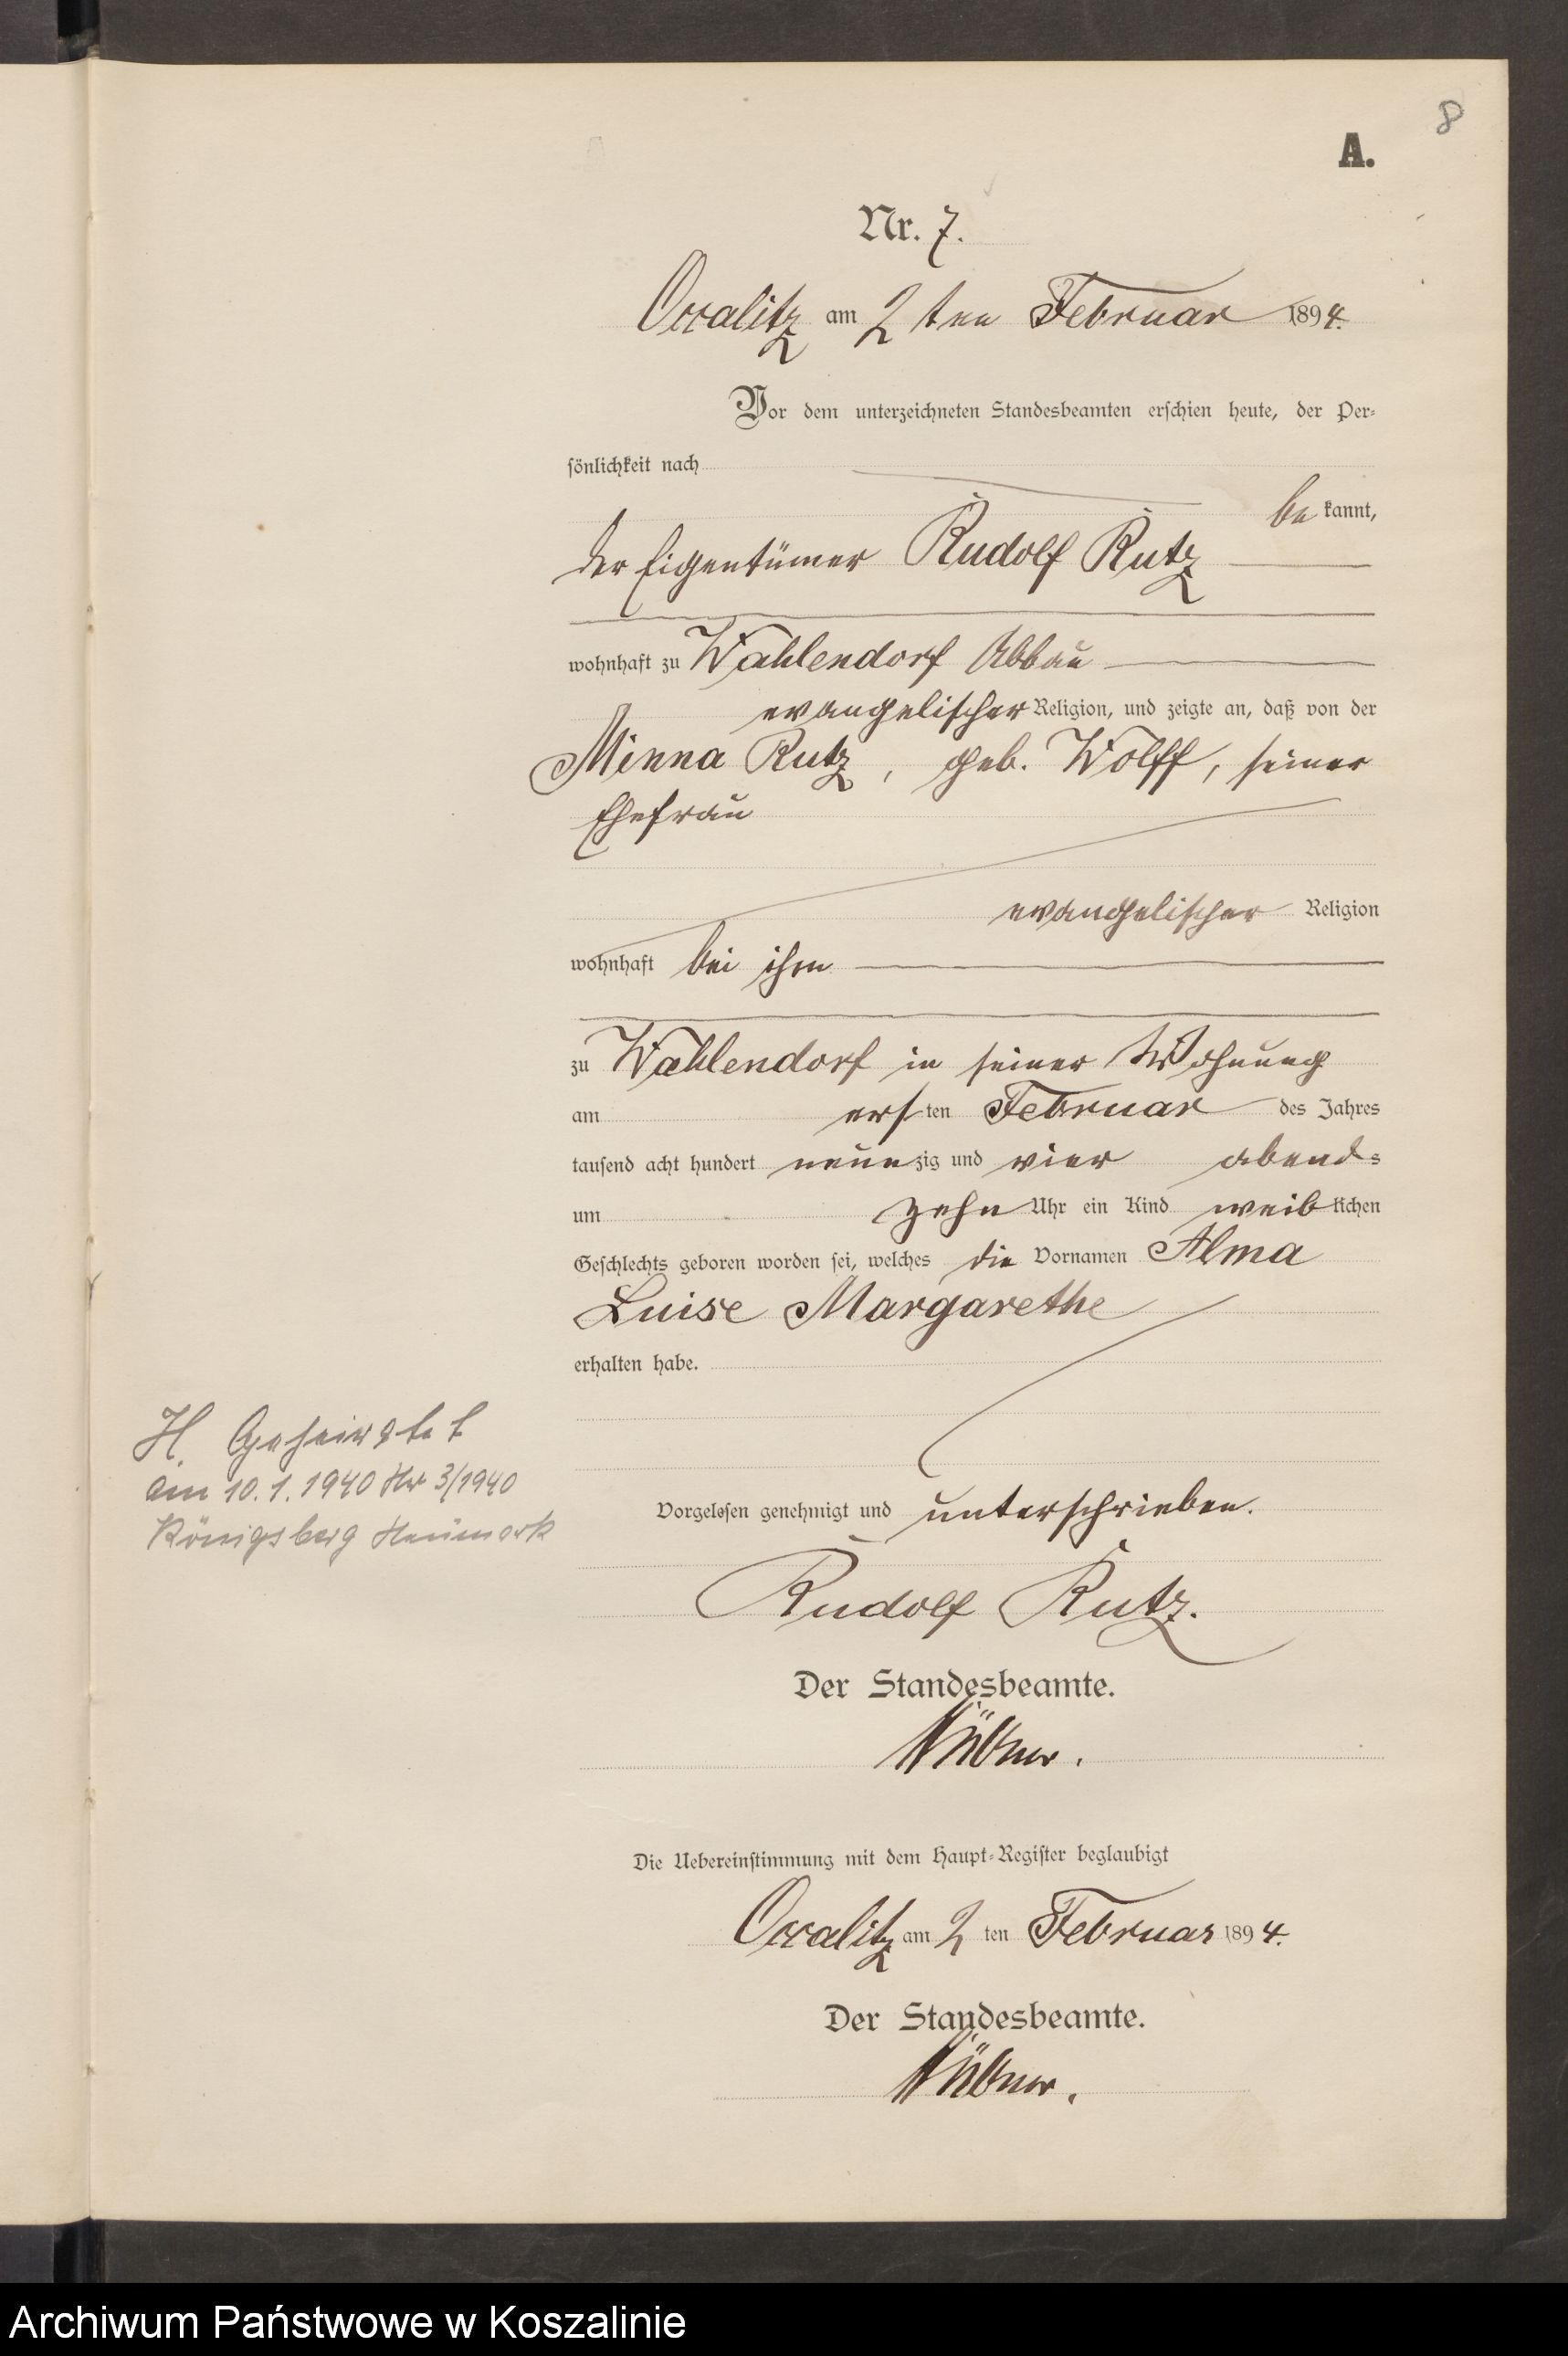 8
A.
Nr. 7.
Occalitz am 2 ten Februar 1894.
Vor dem unterzeichneten Standesbeamten erschien heute, der Per-
sönlichkeit nach
be kannt,
der Eigentümer Rudolf Rutz
wohnhaft zu Wahlendorf Abbau
evangelischer Religion, und zeigte an, daß von der
Minna Rutz, geb. Wolff, seiner
Ehefrau
evangelischer Religion
wohnhaft bei ihm
zu Wahlendorf in seiner Wohnung
am ersten Februar des Jahres
tausend acht hundert neunzig und vier abend-
um zehn Uhr ein Kind weiblichen
Geschlechts geboren worden sei, welches die Vornamen Alma
Luise Margarethe
erhalten habe.
H. Geheiratet
am 10.1.1940 Nr 3/1940
Königsberg Neumark
Vorgelesen genehmigt und unterschrieben.
Rudolf Rutz.
Der Standesbeamte.
Die Uebereinstimmung mit dem Haupt-Register beglaubigt
Occalitz am 2 ten Februar 1894.
Der Standesbeamte.
Archiwum Państwowe w Koszalinie